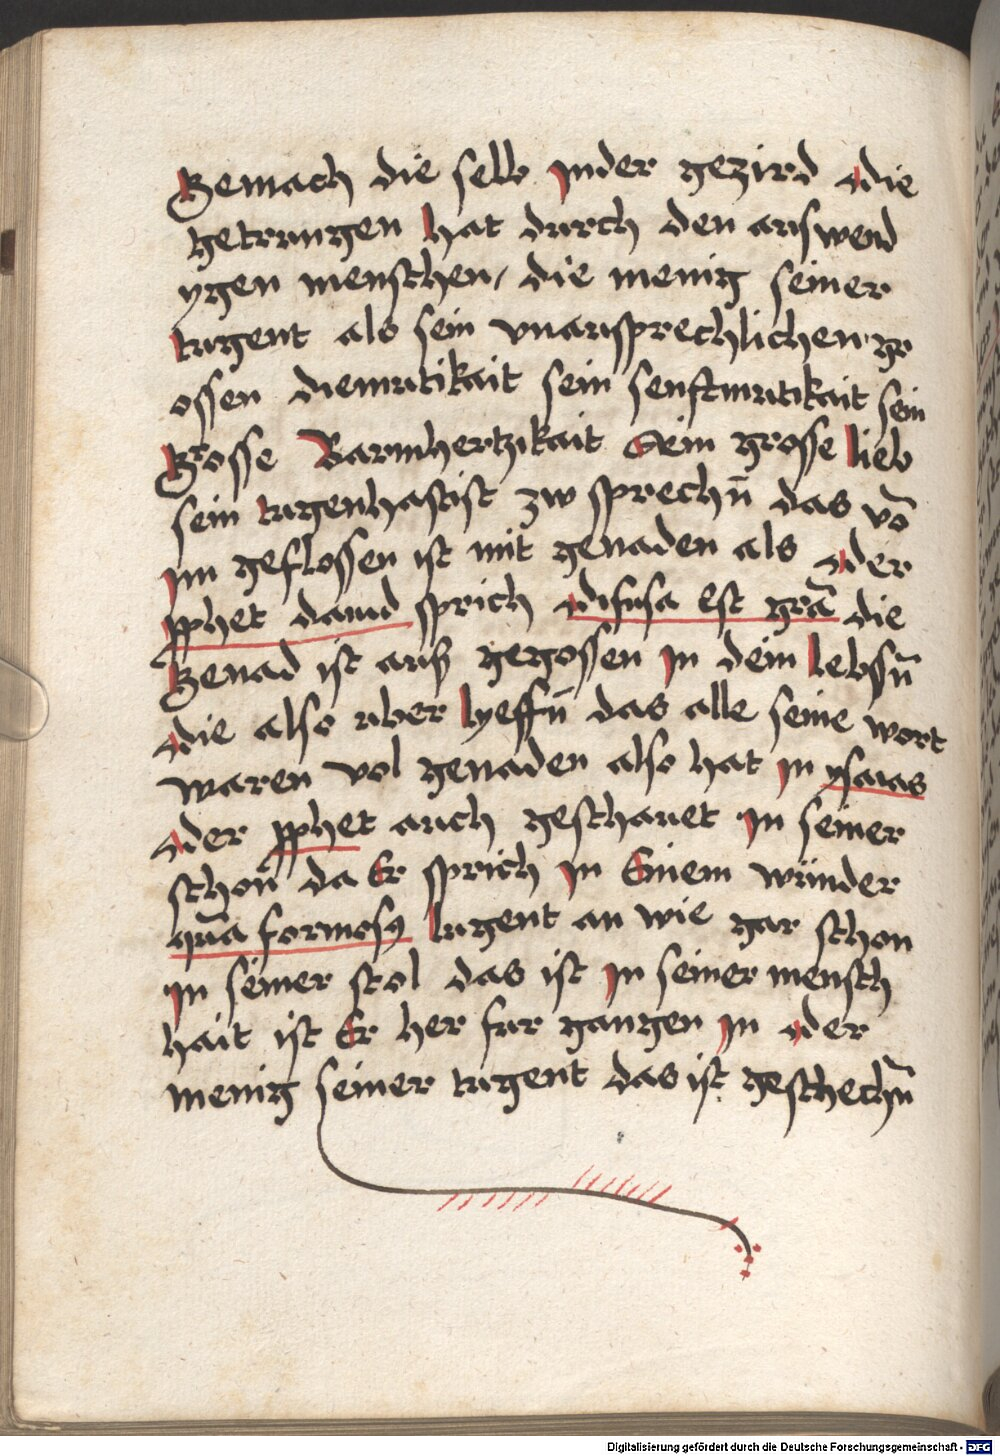 Gemach die selb Inder gezird die
getrungen hat durch den auswend
ygen menschen / die menig seiner
tugent als sein vnaussprechlichen gr
ossen diemutikait sein senftmutikait sein
Grosse Barmhertzikait Sein grosse lieb
sein tugenhaftist zw sprechn̄ das vō
Im geflossen ist mit genaden als der
pphet dauid sprich difusa Est grā die
Genad ist auß gegossen In dein lebsñ
die also uber lyeffn̄ das alle seine wort
waren vol genaden also hat in ysaias
der pphet auch geschauet In seiner
schon̄ da Er sprich In Einem wünder
quā formosꝰ lugent an wie gar schon
In seiner stol das ist In seiner mensch
hait ist Er her fur gangen In der
menig seiner tugent das ist geschechn̄
Digitalisierung gefördert durch die Deutsche Forschungsgemeinschaft - DFG